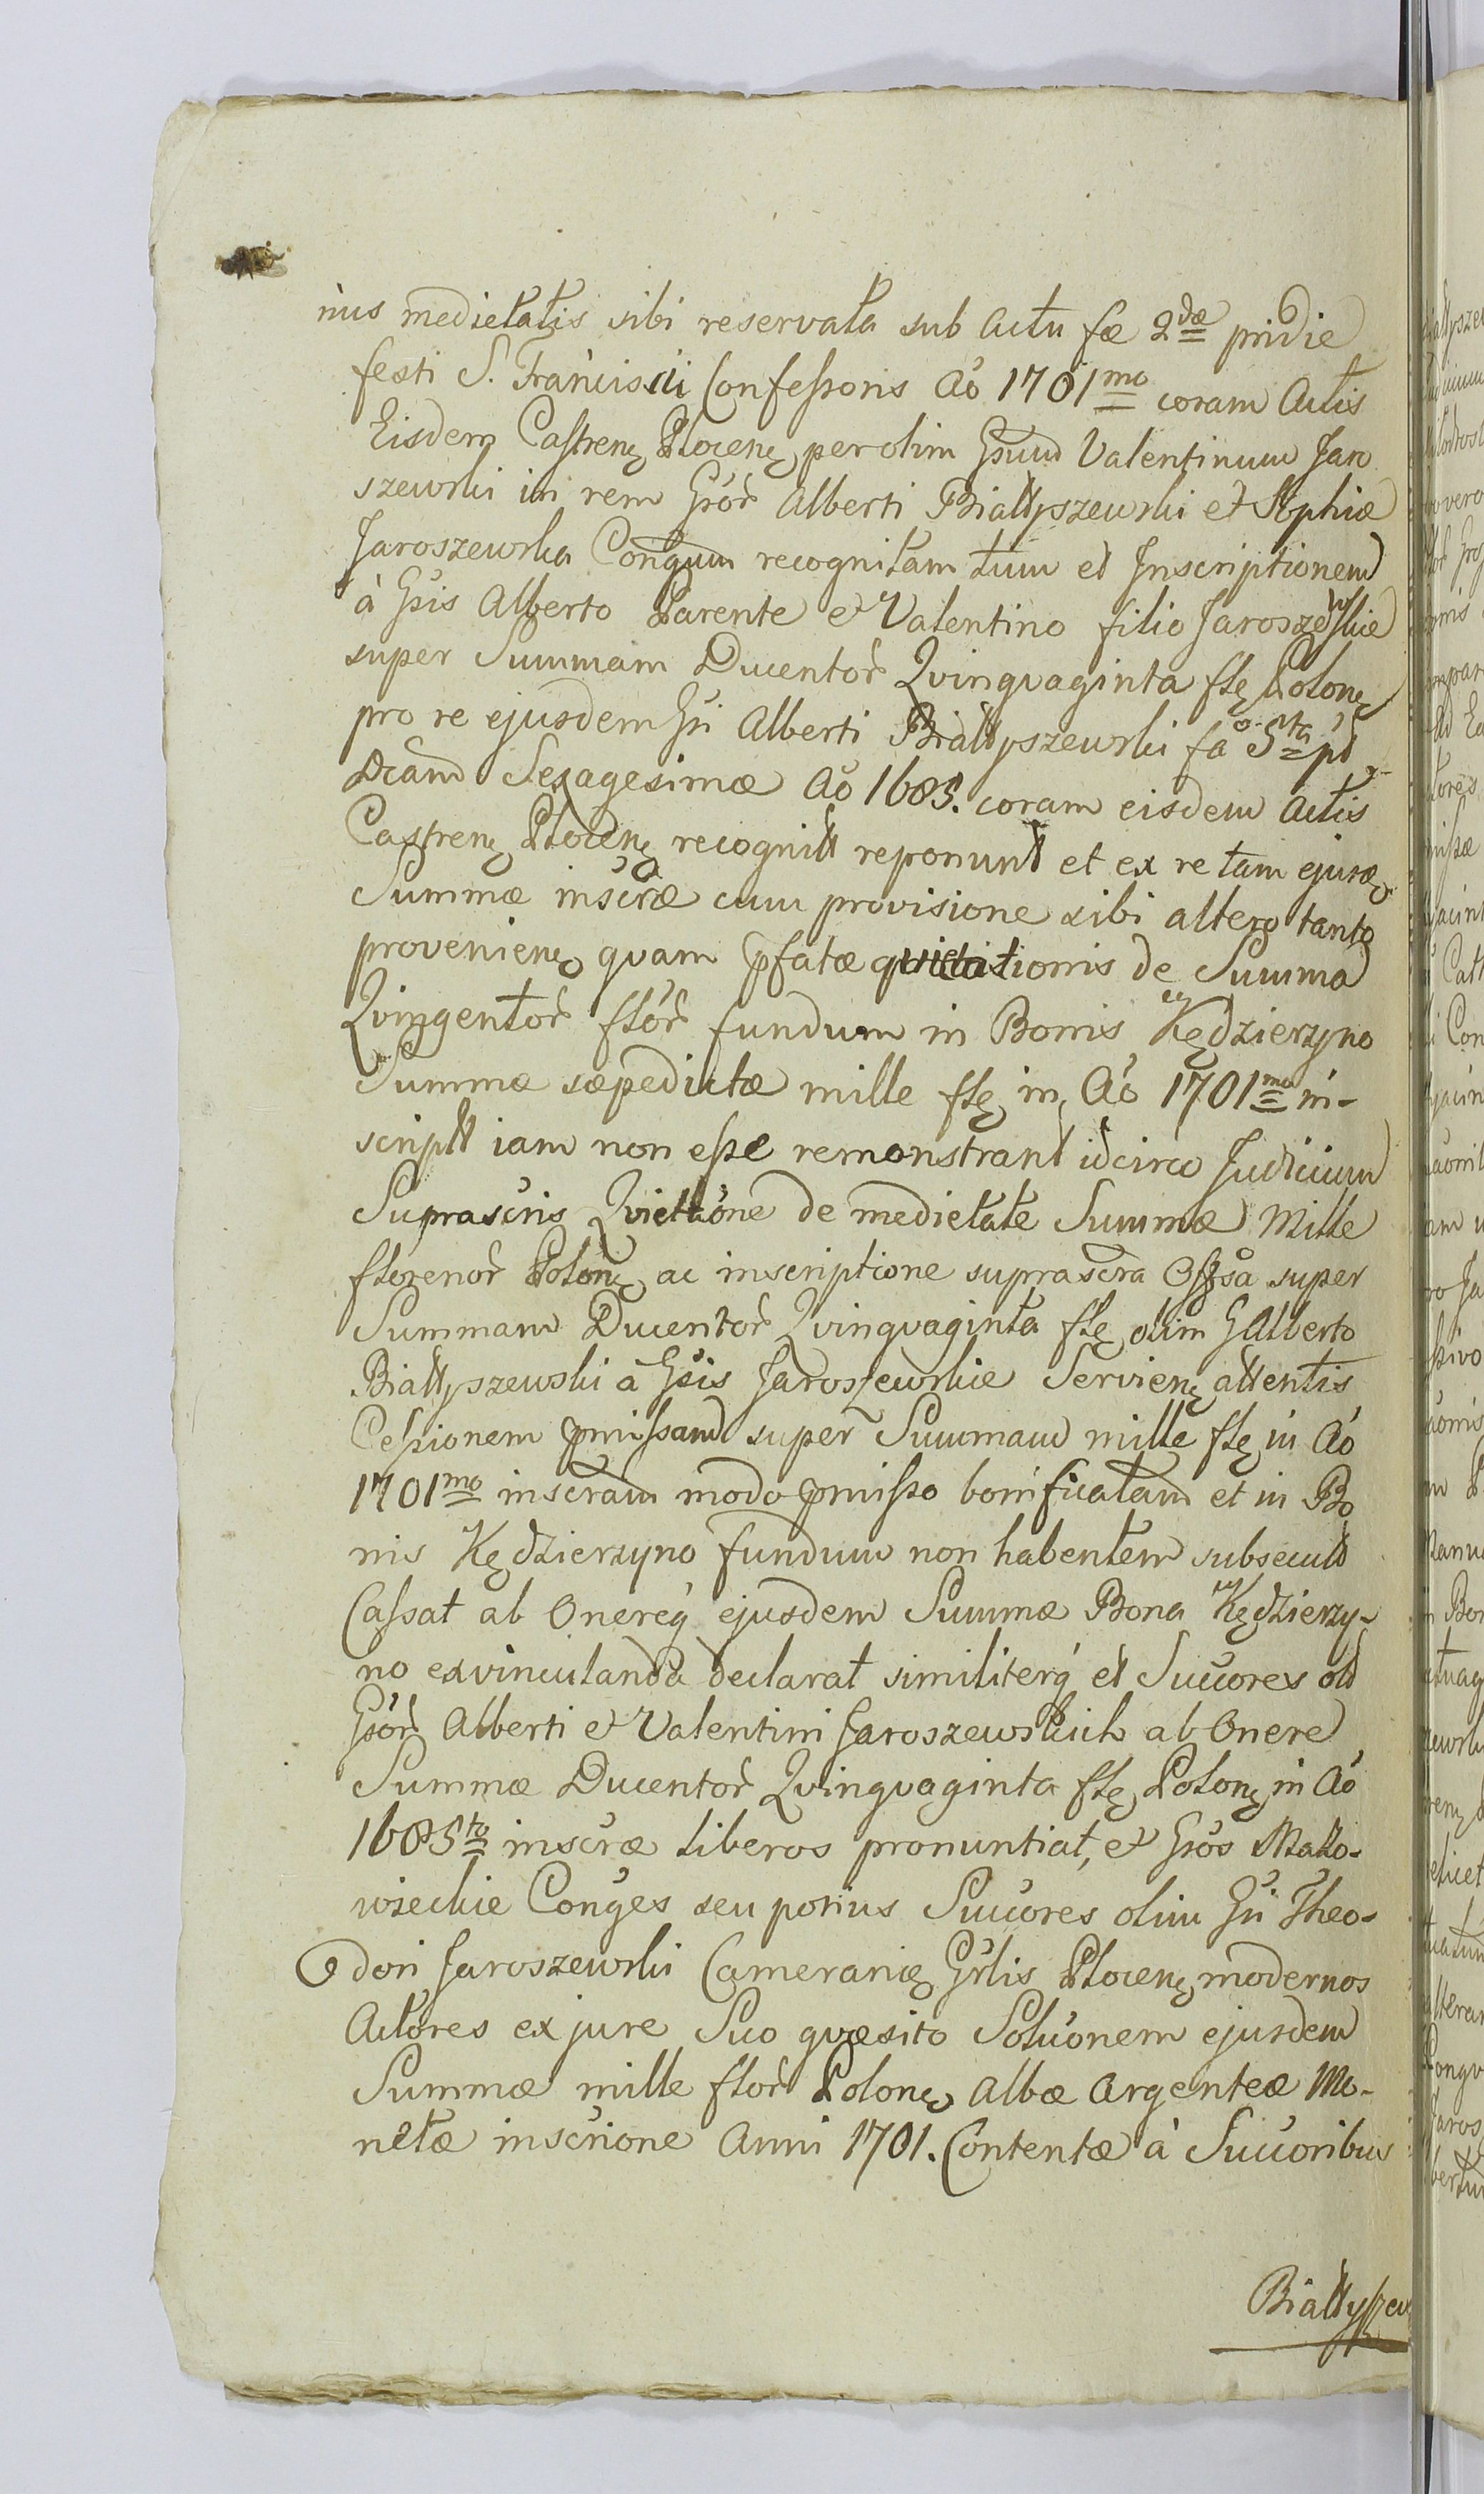 nis medietatis sibi reservata sub Actu fæ 2dæ pridie
festi S. Francisci Confessoris Aô 1701mo coram Actis
Eisdem Castren Plocen per olim Gsum Valentinum Jaro
szewski in rem Gsôr Alberti Białłyszewski et Sophiæ
Jaroszewska Congum recognitam tum et Inscriptionem
à Gsis Alberto Parente et Valentino filio Jaroszewskie
super Summam Ducentor Qvinqvaginta fle Polon
pro re ejusdem Gsi Alberti Białłyszewski fa 5ta pt
Dcam Sexagesimæ Aô 1685. coram eisdem Actis
Castren Plocen recognitt reponunt et ex re tam ejusd
Summæ inscræ cum provisione sibi altero tanto
provenien qvam pfatæ qvietationis de Summa
Qvingentor flôr fundum in Bonis Kędzierzyno
Summæ sæpedictæ mille fle in Aô 1701mo in-
scriptt iam non esse remonstrant idcirco Judicium
Suprascris Qviettône de medietate Summæ Mille
florenor Polon ac inscriptione suprascra Ossa super
Summam Ducentor Qvinqvaginta fle olim G Alberto
Białłyszewski à Gsis Jaroszewskie Servien attentis
Cessionem pmissam super Summam mille fle in Aô
1701mo inscram modo pmisso bonificatam et in Bo
nis Kędzierzyno fundum non habentem subsecutt
Cassat ab Onereq ejusdem Summæ Bona Kędzierzy-
no exvinculanda declarat similiterq et Succores olt
Gsôr Alberti et Valentini Jaroszewskich ab Onere
Summæ Ducentor Qvinqvaginta fle Polon in Aô
1685to inscræ liberos pronuntiat, et Gsôs Mako-
wieckie Conges seu potius Succores olim Gsi Theo-
dori Jaroszewski Camerarie Grlis Plocen modernos
Actores ex jure Suo qvæsito Solutionem ejusdem
Summæ mille flor Polon Albæ Argenteæ Mo-
netæ inscrione Anni 1701. Contentæ à Succoribus
Białłyszew